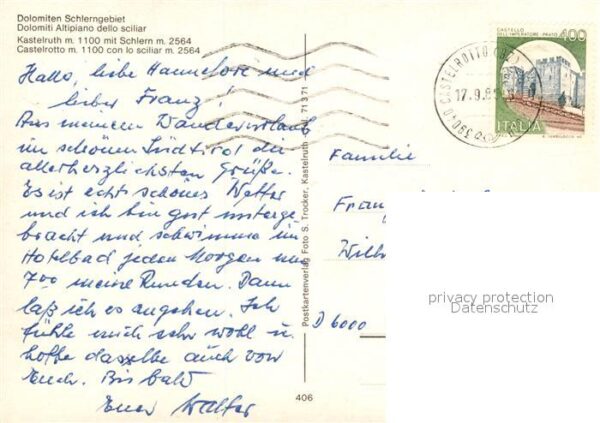 Dolomiten Schlerngebiet
Dolomiti Altipiano dello sciliar
Kastelruth m. 1100 mit Schlern m. 2564
Castelrotto m. 1100 con lo sciliar m. 2564
Hallo, liebe Hannelore und
lieber Franz!
Aus meinem Wanderurlaub
im schönen Südtirol die
allerherzlichsten Grüße.
Es ist echt schönes Wetter
und ich bin gut unterge
bracht und schwimme im
Hotelbad jeden Morgen um
700 meine Runden. Dann
laß ich es angehen. Ich
fühle mich sehr wohl u.
hoffe dasselbe auch von
Euch. Bis bald
Euer Walter
Postkartenverlag Foto S. Trocker, Kastelruth
71371
406
CASTELLO
DELL'IMPERATORE PRATO
400
ITALIA
39040 CASTELROTTO (BZ)
17.9.8
Familie
Fran
Wilh
D 6000
privacy protection
Datenschutz